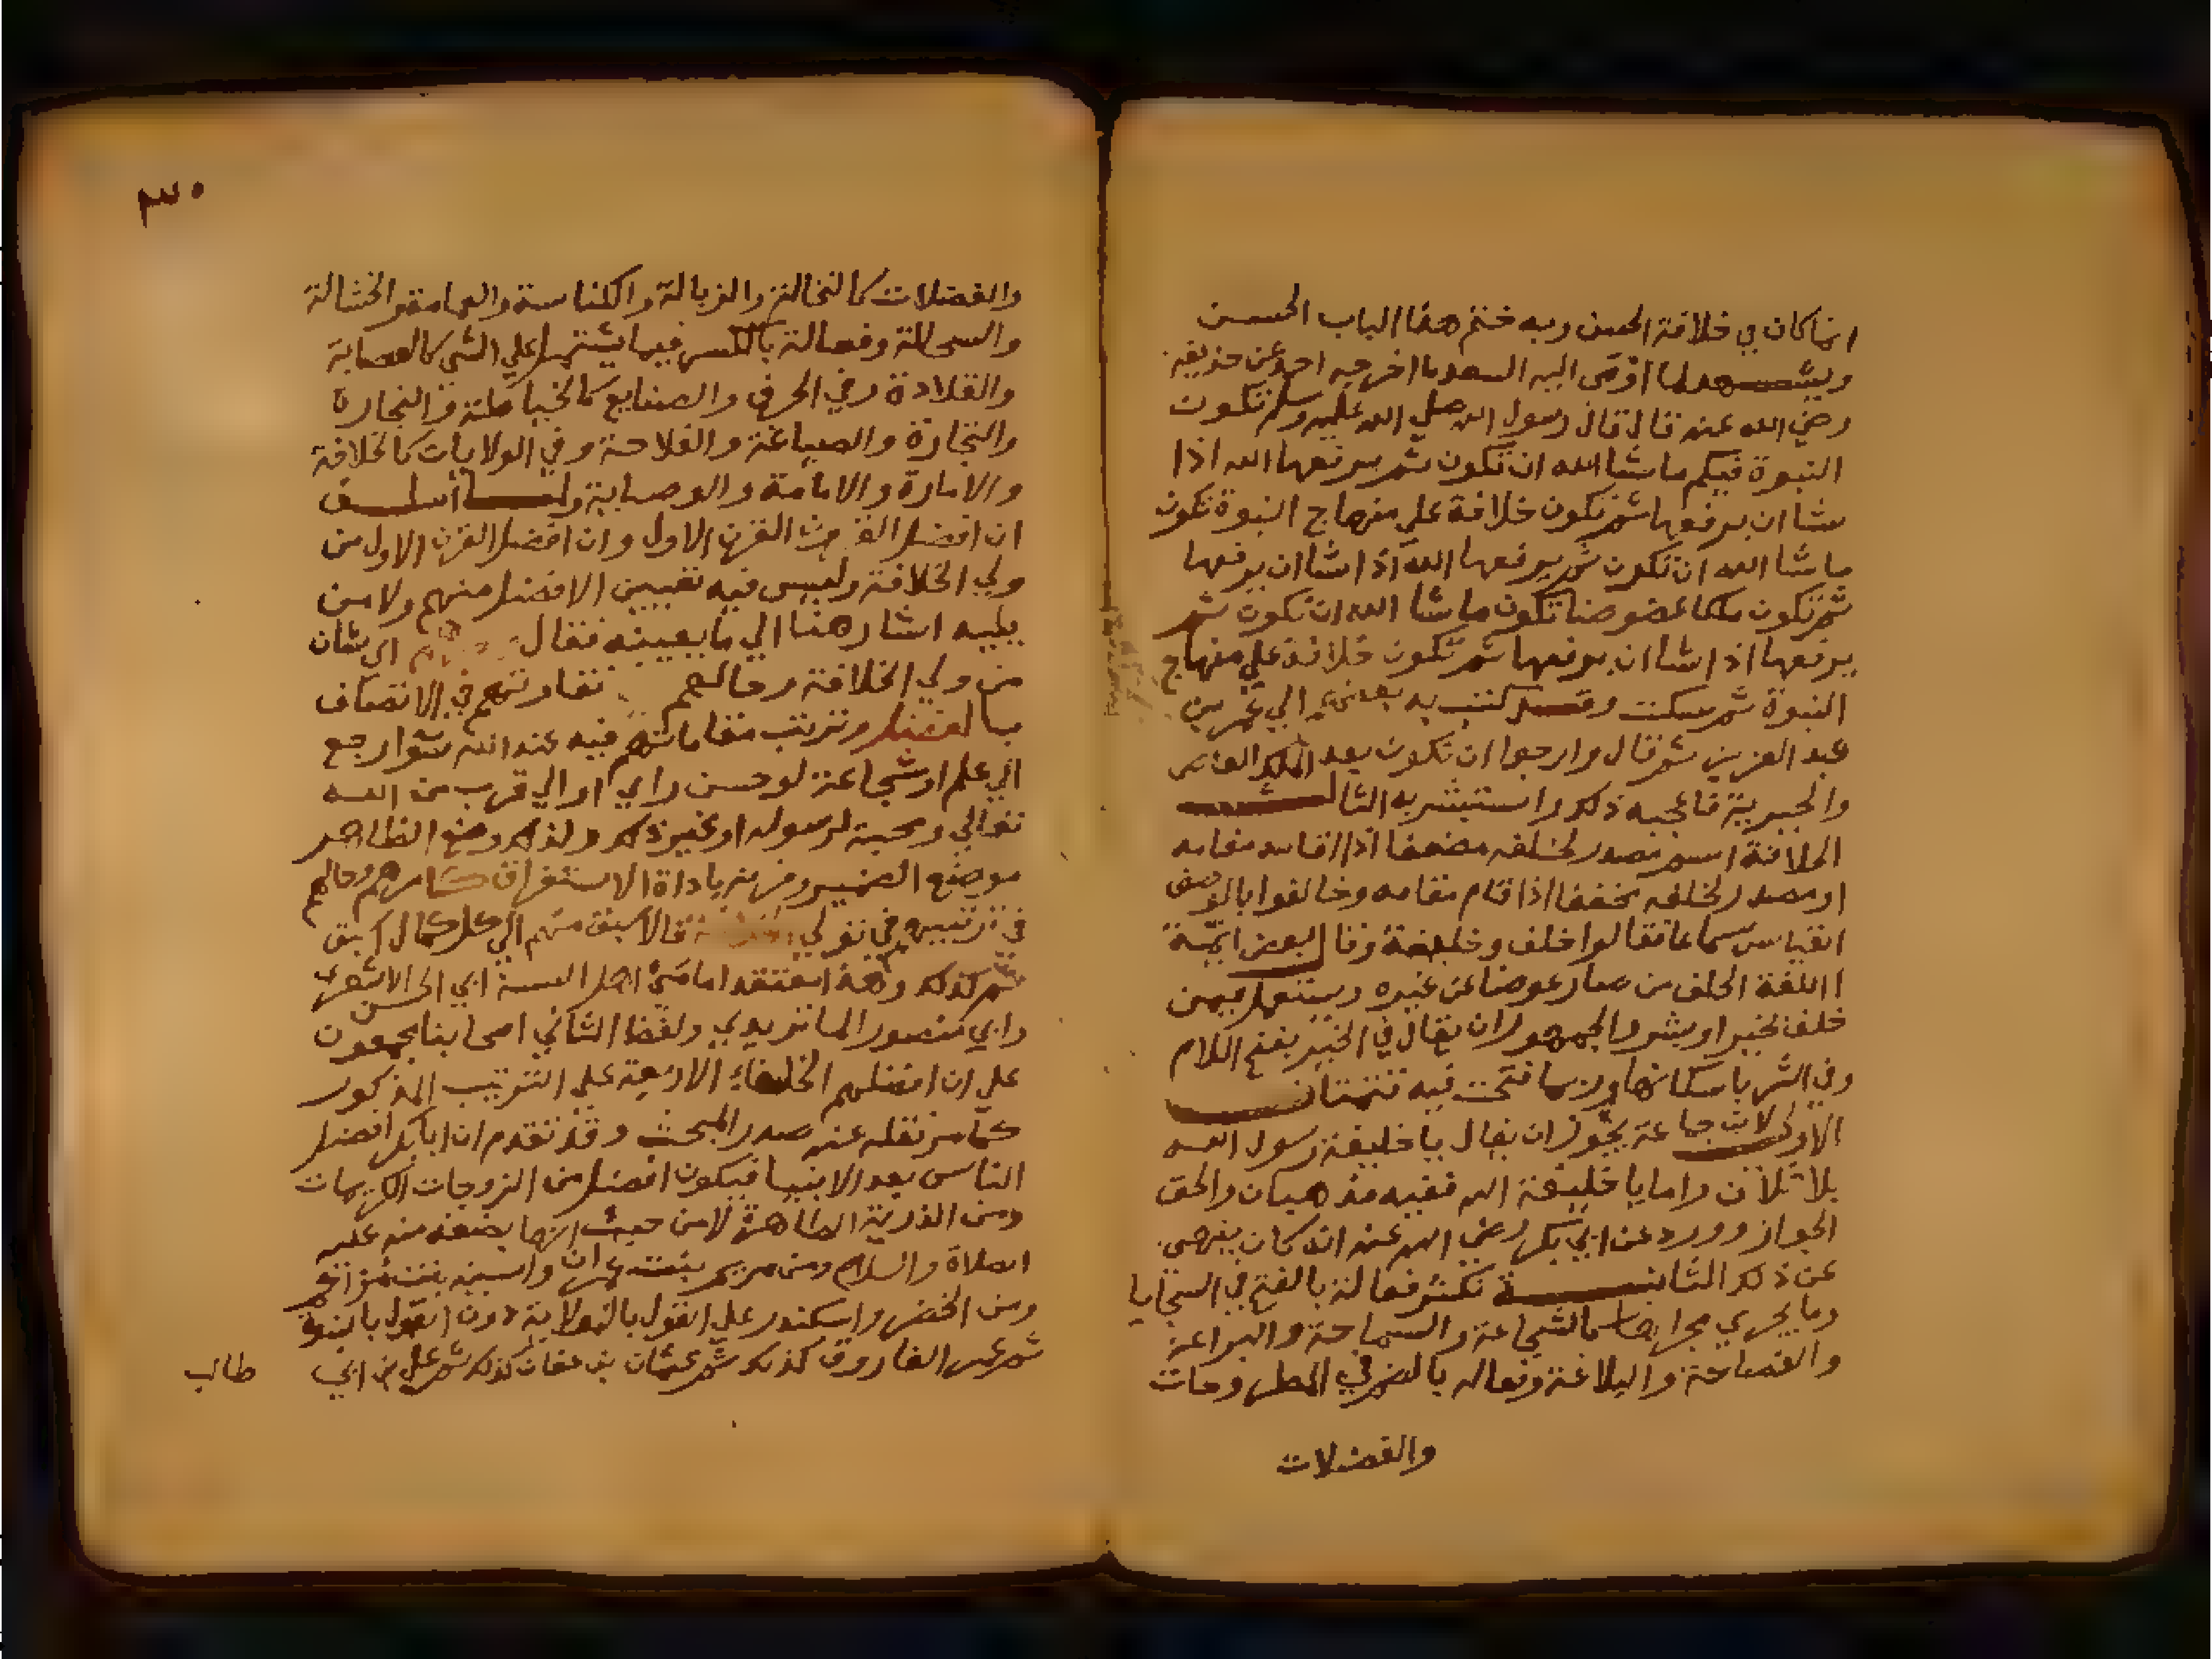 انما كان في خلافة الحسن وبه ختم هذا الباب الحسن
ويشهد لما اليه السعد ما اخرجه احمد عن حذيفة
رضي الله عنه قال قال رسول الله صلي الله عليه وسلم تكون
النبوة فيكم ما شا الله ان تكون ثم يرفعها الله اذا
شا ان يرفعها ثم تكون خلافة علي منهاج النبوة تكون
ما شا الله ان تكون ثم يرفعها الله اذا شا ان يرفعها
ثم تكون ملكا عضوضا تكون ما شا الله ان تكون ثم
يرفعها اذا شا ان يرفعها ثم تكون خلافة علي منهاج
النبوة ثم سكت وقد كتب به الي عمر بن
عبد العزيز ثم قال وارجوا ان تكون بعد الملك العاض
والجبرية فاعجبه ذلك واستبشر به الثالث
الخلافة اسم مصدر لخلفه مضعفا اذا اقامه مقامه
او مصدر لخلفه مخففا اذا قام مقامه وخالفوا بالوصف
القياس سماعا فقالوا خلف وخليفة وقال بعض ايمة
اللغة الخلف من صار عوضا عن غيره ويستعمل فيمن
خلف لخير او بشر والجمهور ان يقال في الخير بفتح اللام
وفي الشر باسكانها وربما فتحت فيه تتمتان
الاولى جماعة يجوز ان يقال يا خليفة رسول الله
بلا خلاف واما يا خليفة الله ففيه مذهبان والحق
الجواز وورد عن ابي بكر رضي الله عنه انه كان ينهي
عن ذلك الثانية تكثر فعالة بالفتح في السجايا
وما يجري مجراها كالشجاعة والسماحة والبراعة
والفصاحة والبلاغة وفعاله بالضم في المطروحات
والفضلات
٣٠
والفضلات كالنخالة والزبالة والكناسة والخشالة
والسحالة وفعالة بالكسر فيما يشتمل علي الشي كالعصابة
والقلادة وفي الحرف والصنايع كالخياطة والنجارة
والتجارة والصباغة والفلاحة وفي الولايات كالخلافة
والامارة والامامة والوصاية ولما أسلف
ان افضل القرون القرن الاول وان افضل القرن الاول من
ولي الخلافة وليس فيه تعيين الافضل منهم ولا من
يليه اشار هنا الي ما يعينه فقال اي شان
من ولي الخلافة وحالهم تفاوتهم في الاتصاف
بالفضل وترتب مقاماتهم فيه عند الله سوا رجع
الي علم او شجاعة او حسن راي او الي قرب من الله
تعالي ومحبة لرسوله او غير ذلك ولذلك وضع الظاهر
موضع الضمير وقرنه باداة الاستغراق وحالهم
في ترتيبهم في تولي فالاسبق منهم الي كل كمال اسبق
ثم كذلك وهذا معتقد امامي اهل السنة ابي الحسن الاشعري
وابي منصور الماتريدي ولفظ الثاني اصحابنا مجمعون
علي ان افضلهم الخلفاء الاربعة علي الترتيب المذكور
كما مر نقله عنه صدر المبحث وقد تقدم ان ابا بكر افضل
الناس بعد الانبيا فيكون افضل من الزوجات الكريمات
ومن الذرية الطاهرة لا من حيث انها بضعة منه عليه
الصلاة والسلام ومن مريم بنت عمران واسية بنت مزاحم
ومن الخضر واسكندر علي القول بالولاية دون القول بالنبوة
ثم عمر الفاروق كذلك ثم عثمان بن عفان كذلك ثم علي بن ابي
طالب